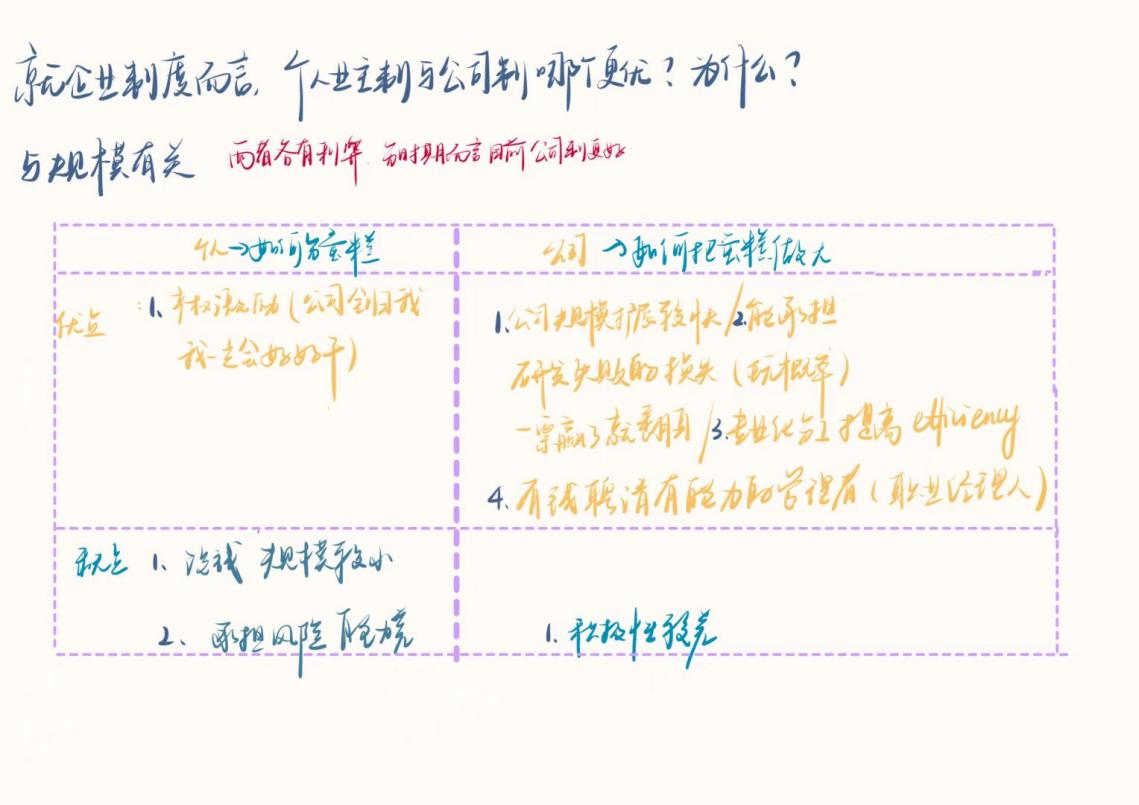 就企业制度而言，个人业主制与公司制哪个更优？为什么？
与规模有关 两者各有利弊 分时期而言目前公司制更好
个人→如何分蛋糕
公司→如何把蛋糕做大
优点
1、产权激励（公司全归我
我一定会好好干）
1、公司规模扩展较快/2.能承担
研发失败的损失（玩概率）
一票赢了就翻身/3.专业化分工提高efficiency
4、有钱聘请有能力的管理者（职业经理人）
缺点
1、没钱 规模较小
2、承担风险能力差
1、积极性较差